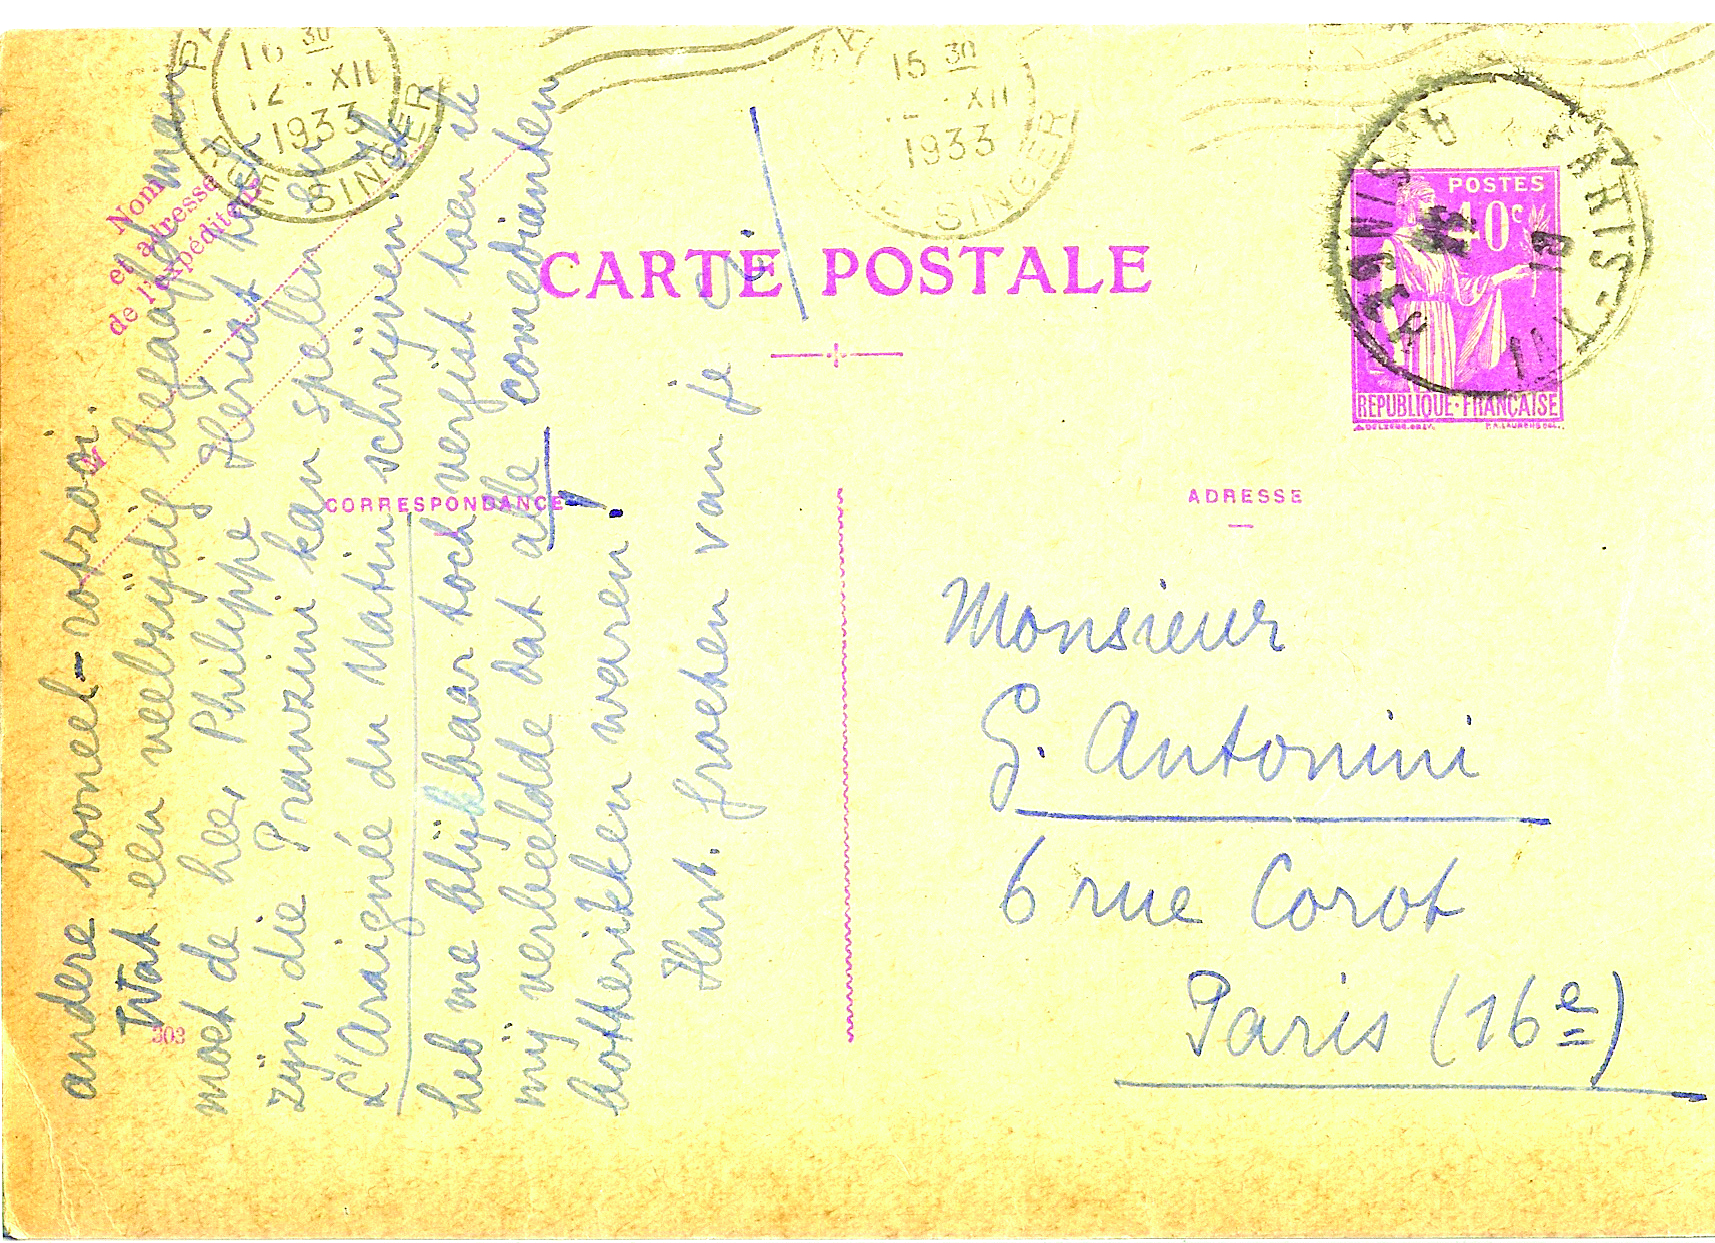 16 30
12 · XII
1933
SINGER
15 30
XII
1933
SINGER
Nom
et adresse
de l'expéditeur
CARTE POSTALE
POSTES
40c
REPUBLIQUE·FRANÇAISE
PARIS
CORRESPONDANCE
ADRESSE
303
andere tooneel-zotzooi.
Wat een veelzijdig begaafd man
moet de heer Philippe Hériat toch
zijn, die Pranzini kan spelen en
L'Araignée du Matin schrijven. Ik
heb me blijkbaar toch vergist toen ik
mij verbeeldde dat alle comedianten
botteriken waren!
Hart. groeten van je
Monsieur
G. Antonini
6 rue Corot
Paris (16e)